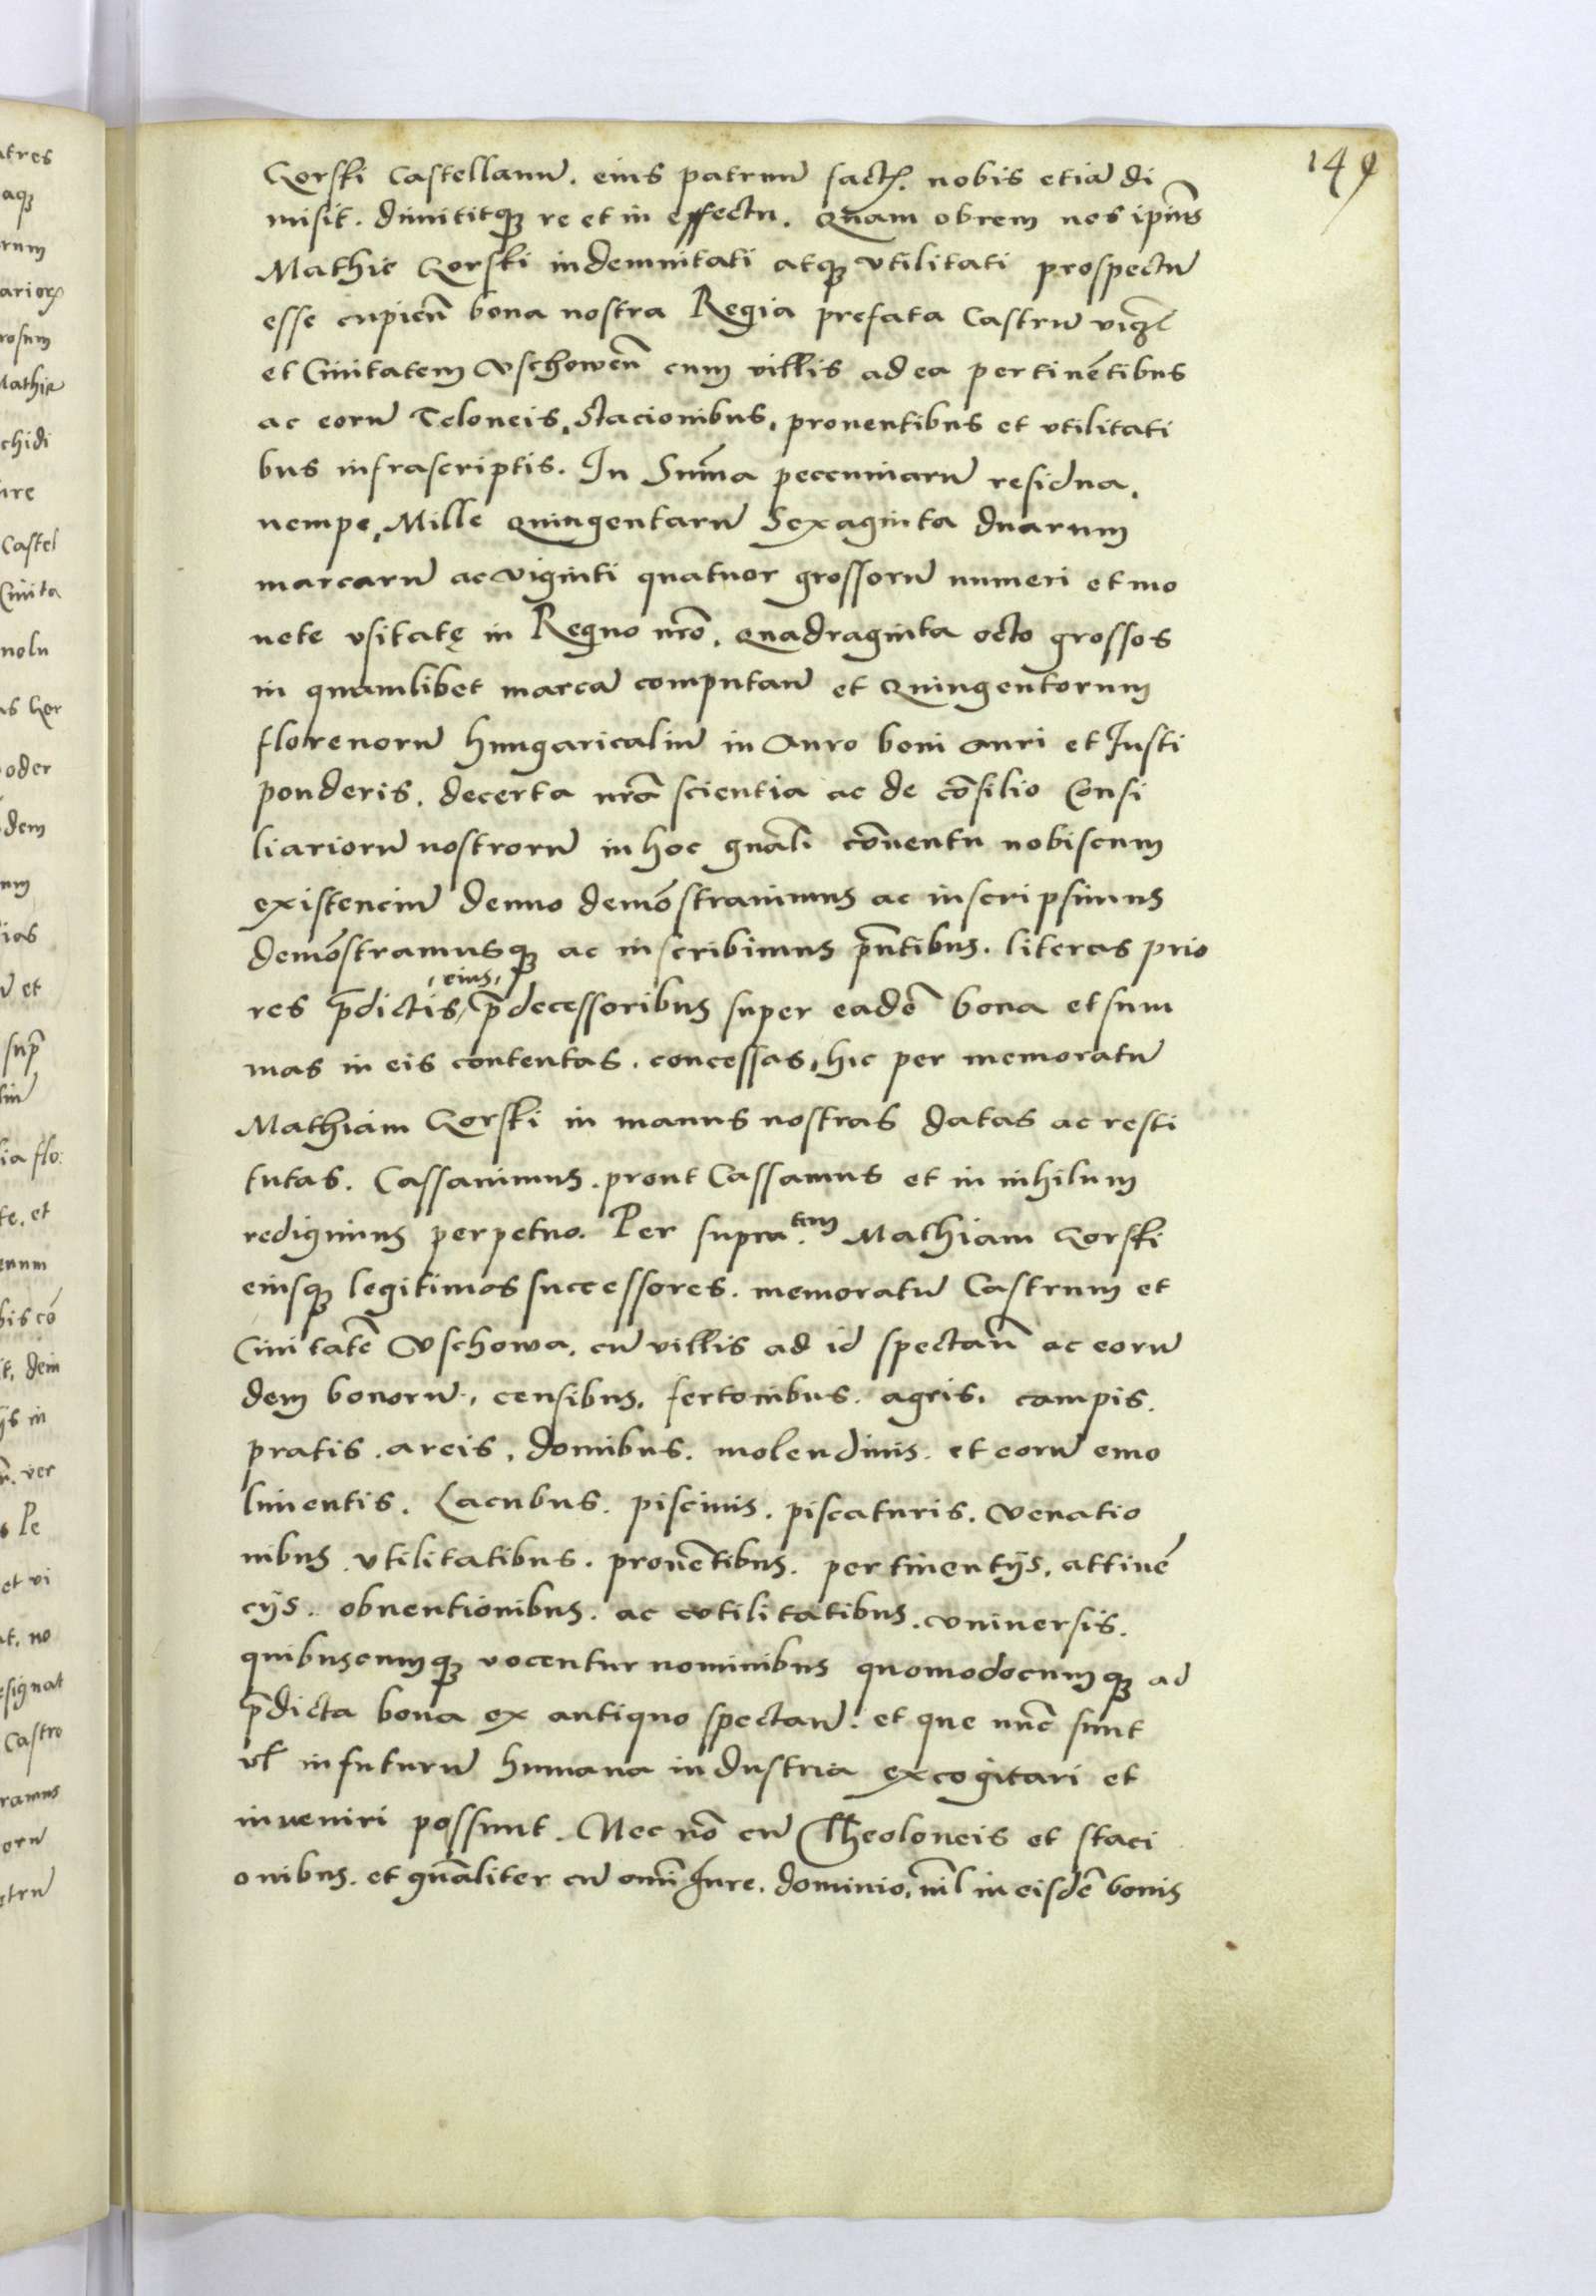 149
Gorski Castellanū. eius patruū fact. nobis etiā di
misit. dimititqȝ re et in effectu. Quam obrem nos ipīus
Mathie Gorski indemnitati atqȝ vtilitati prospectū
esse cupieñ bona nostra Regia prefata Castrū viqȝ
et Ciuitatem Vschoweñ cum villis ad ea pertinētibus
ac eorū Teloneis, Stacionibus, prouentibus et vtilitati
bus infrascriptis. In Sūma peccuniarū residua,
nempe, Mille Quingentarū Sexaginta duarum
marcarū ac viginti quatuor grossorū numeri et mo
nete vsitatę in Regno nrō. Quadraginta octo grossos
in quamlibet marcā computanđ et Quingentorum
florenorū hungaricaliū in Auro boni auri et Iusti
ponderis. de certa nrā scientia ac de cōsilio Consi
liariorū nostrorū in hoc gnāli cōuentu nobiscum
existenciū denuo demōstrauimus ac inscripsimus
demōstramusqȝ ac inscribimus pn̄tibus. literas prio
res p̄dictis, eius, p̄decessoribus super eadē bona et sum
mas in eis contentas. concessas, hic per memoratū
Mathiam Gorski in manus nostras datas ac resti
tutas. Cassauimus. prout Cassamus et in nihilum
redigimus perpetuo. Per supra.tum Mathiam Gorski
eiusqȝ legitimos successores. memoratū Castrum et
Ciuitatē Vschowa. cū villis ad id spectañ ac eorū
dem bonorū, censibus. fertonibus. agris. campis.
pratis. areis. domibus. molendinis. et eorū emo
lumentis. Lacubus. piscinis. piscaturis. Venatio
nibus. vtilitatibus. prouētibus. pertinentijs. attinē
cijs. obuentionibus. ac vtilitatibus. vniuersis.
quibuscumqȝ vocentur nominibus quomodocumqȝ ad
p̄dicta bona ex antiquo spectanđ. et que nūc sunt
vl in futurū humana industria excogitari et
inueniri possunt. Nec nō cū Theoloneis et staci
onibus. et gn̄aliter cū omī Iure. dominio, nīl in eisdē bonis